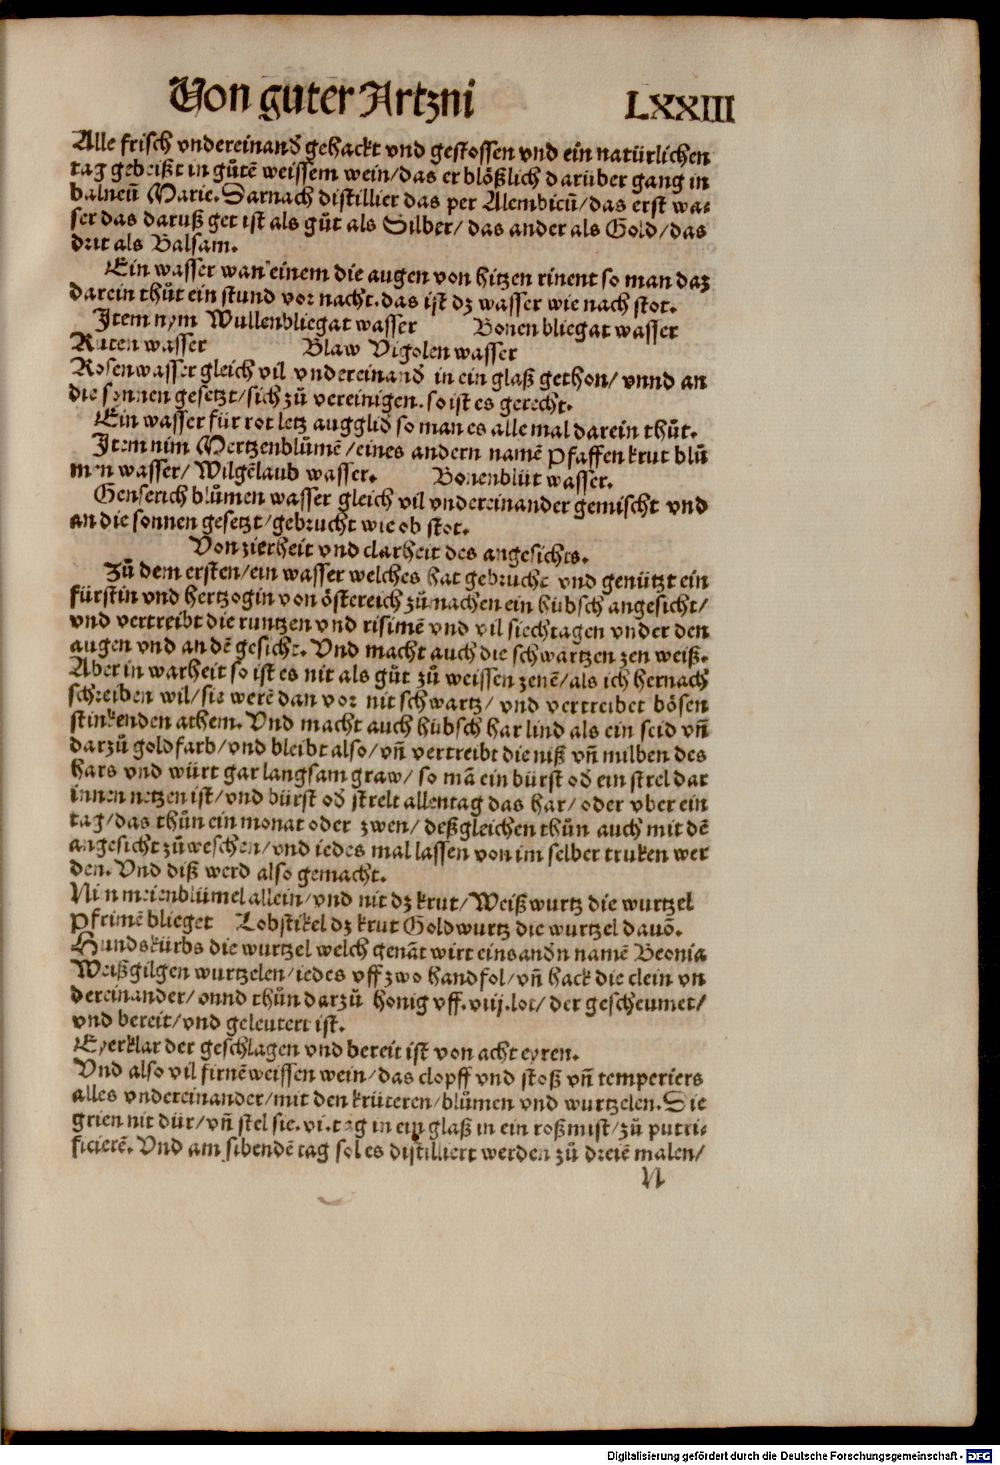 Von guter Artzni LXXIII
Alle frisch vndereinand gehackt vnd gestossen vnd ein natürlichen
tag gebeißt in gůtē weissem wein/das er blößlich darüber gang in
balneū Marie. Darnach distillier das per Alembicū/das erst wa⸗
ser das daruß get ist als gůt als Silber/ das ander als Gold/das
drit als Balsam.
Ein wasser wan einem die augen von hitzen rinent so man daz
darein thůt ein stund vor nacht. das ist dz wasser wie nach stot.
Item nym Wullenbliegat wasser Bonen bliegat wasser
Ruten wasser Blaw Vigolen wasser
Rosenwasser gleich vil vndereinand in ein glaß gethon/ vnnd an
die sonnen gesetzt/sich zů vereinigen. so ist es gerecht.
Ein wasser für rot letz augglid so man es alle mal darein thůt.
Item nim Mertzenblůmē/eines andern namē Pfaffenkrut blů
men wasser/ Wilgēlaub wasser. Bonenblüt wasser.
Genserich blůmen wasser gleich vil vndereinander gemischt vnd
an die sonnen gesetzt/gebrucht wie ob stot.
Von zierheit vnd clarheit des angesichts.
Zů dem ersten/ein wasser welches hat gebrucht vnd genützt ein
fürstin vnd hertzogin von östereich zůmachen ein hübsch angesicht/
vnd vertreibt die runtzen vnd risimē vnd vil siechtagen vnder den
augen vnd an dē gesicht. Vnd macht auch die schwartzen zen weiß.
Aber in warheit so ist es nit als gůt zů weissen zenē/als ich hernach
schreiben wil/sie werē dan vor nit schwartz/ vnd vertreibet bösen
stinkenden athem. Vnd macht auch hübsch har lind als ein seid vñ
darzů goldfarb/vnd bleibt also/vñ vertreibt die niß vñ milben des
hars vnd würt gar langsam graw/ so mā ein bürst od ein strel dar
innen netzen ist/vnd bürst od strelt allentag das har/ oder vber ein
tag/das thůn ein monat oder zwen/ deßgleichen thůn auch mit dē
angesicht zůweschen/vnd iedes mal lassen von im selber truken wer
den. Vnd diß werd also gemacht.
Nim meienblümel allein/vnd nit dz krut/Weißwurtz die wurtzel
Pfrimē blieget Lobstikel dz krut Goldwurtz die wurtzel dauō.
Hundskürbs die wurtzel welch genāt wirt eins andn namē Beonia
Weißgilgen wurtzelen/iedes vff zwo handfol/vñ hack die clein vn
dereinander/vnnd thůn darzů honig vff.viij.lot/der gescheumet/
vnd bereit/vnd geleutert ist.
Eyerklar der geschlagen vnd bereit ist von acht eyren.
Vnd also vil firnēweissen wein/das clopff vnd stoß vñ temperiers
alles vndereinander/mit den krüteren/blůmen vnd wurtzelen. Die
grien nit dür/vñ stel sie.vi.tag in ein glaß in ein roßmist/zů putri⸗
ficierē. Vnd am sibendē tag sol es distilliert werden zů dreiē malen/
N
Digitalisierung gefördert durch die Deutsche Forschungsgemeinschaft - DFG